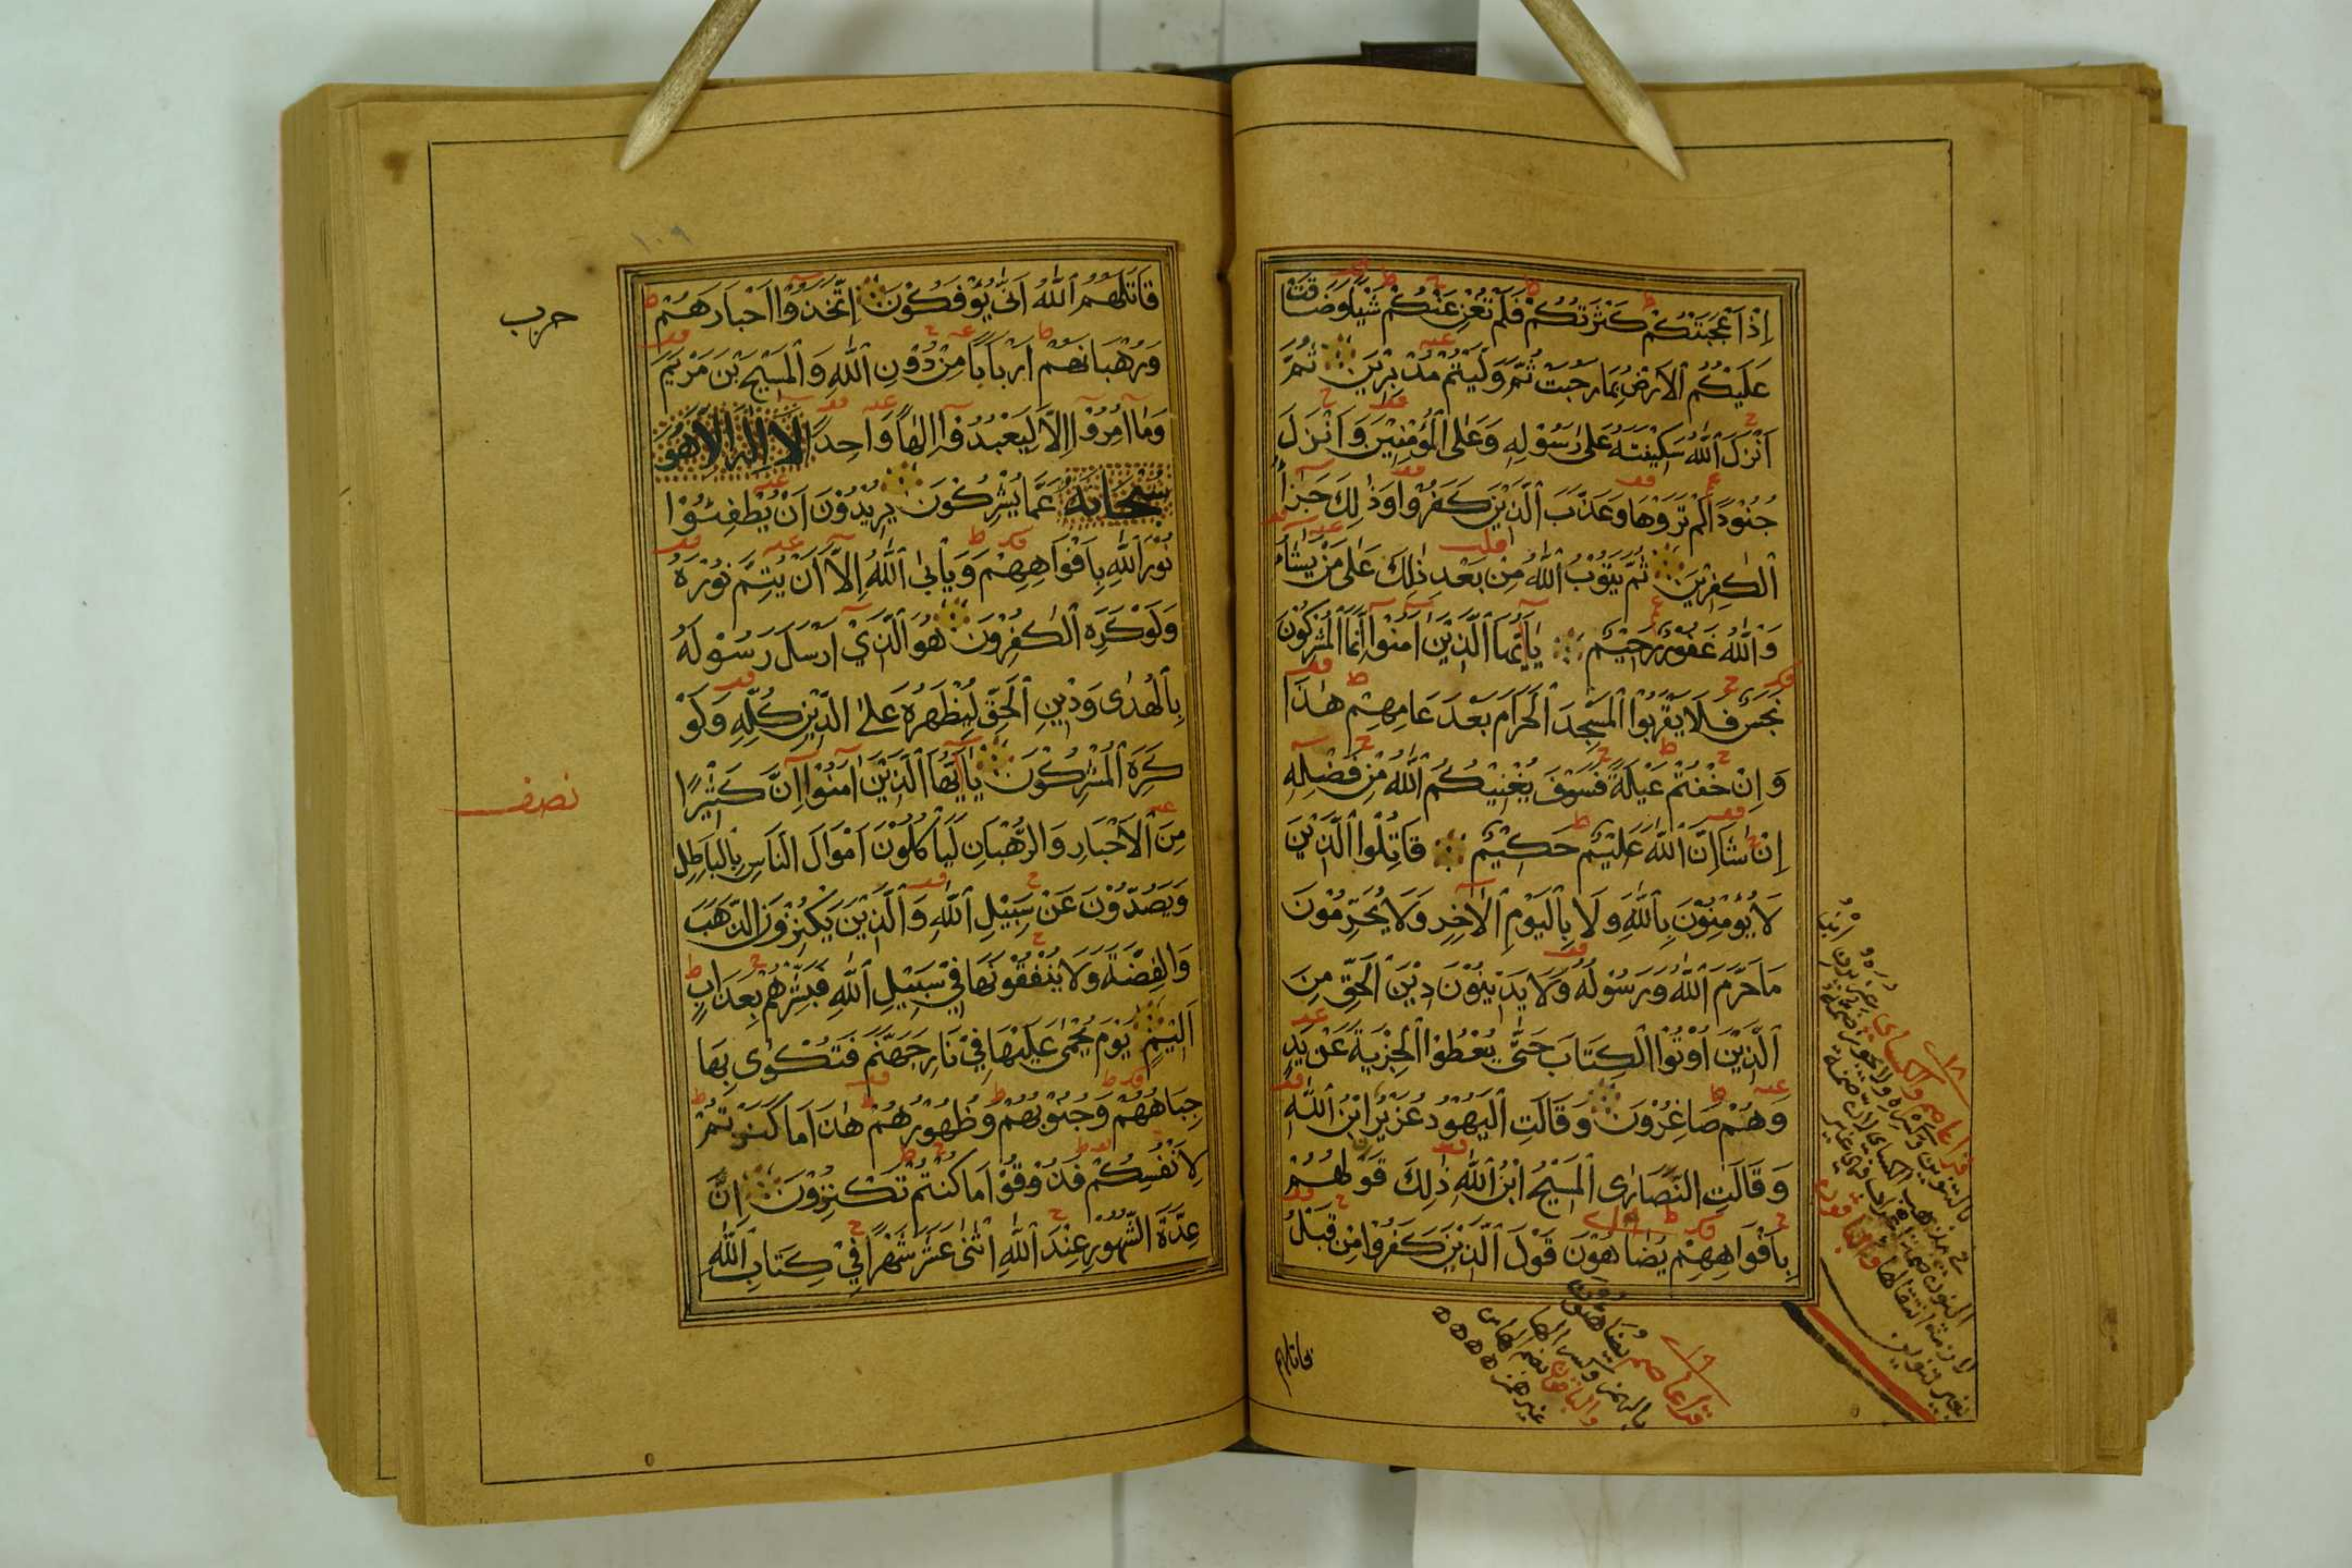 إِذْ أَعْجَبَتْكُمْ كَثْرَتُكُمْ فَلَمْ تُغْنِ عَنْكُمْ شَيْئًا وَضَاقَتْ
عَلَيْكُمُ الْأَرْضُ بِمَا رَحُبَتْ ثُمَّ وَلَّيْتُمْ مُدْبِرِينَ ثُمَّ
أَنْزَلَ اللَّهُ سَكِينَتَهُ عَلَى رَسُولِهِ وَعَلَى الْمُؤْمِنِينَ وَأَنْزَلَ
جُنُودًا لَمْ تَرَوْهَا وَعَذَّبَ الَّذِينَ كَفَرُوا وَذَلِكَ جَزَاءُ
الْكَفِرِينَ ثُمَّ يَتُوبُ اللَّهُ مِنْ بَعْدِ ذَلِكَ عَلَى مَنْ يَشَاءُ
وَاللَّهُ غَفُورٌ رَحِيمٌ يَا أَيُّهَا الَّذِينَ آمَنُوا إِنَّمَا الْمُشْرِكُونَ
نَجَسٌ فَلَا يَقْرَبُوا الْمَسْجِدَ الْحَرَامَ بَعْدَ عَامِهِمْ هَذَا
وَإِنْ خِفْتُمْ عَيْلَةً فَسَوْفَ يُغْنِيكُمُ اللَّهُ مِنْ فَضْلِهِ
إِنْ شَاءَ إِنَّ اللَّهَ عَلِيمٌ حَكِيمٌ قَاتِلُوا الَّذِينَ
لَا يُؤْمِنُونَ بِاللَّهِ وَلَا بِالْيَوْمِ الْآخِرِ وَلَا يُحَرِّمُونَ
مَا حَرَّمَ اللَّهُ وَرَسُولُهُ وَلَا يَدِينُونَ دِينَ الْحَقِّ مِنَ
الَّذِينَ أُوتُوا الْكِتَابَ حَتَّى يُعْطُوا الْجِزْيَةَ عَنْ يَدٍ
وَهُمْ صَاغِرُونَ وَقَالَتِ الْيَهُودُ عُزَيْرٌ ابْنُ اللَّهِ
وَقَالَتِ النَّصَارَى الْمَسِيحُ ابْنُ اللَّهِ ذَلِكَ قَوْلُهُمْ
بِأَفْوَاهِهِمْ يُضَاهُونَ قَوْلَ الَّذِينَ كَفَرُوا مِنْ قَبْلُ
قرأ عاصم والكسائي عزير
بالتنوين وكسره ولا يجوز ضمه
والباقون
بغير تنوين
قرأ عاصم يضاهئون
بالهمز وكسر الهاء
والباقون بضم الهاء من
غير همز
قاتلهم
١٠٩
قَاتَلَهُمُ اللَّهُ أَنَّى يُؤْفَكُونَ اتَّخَذُوا أَحْبَارَهُمْ
وَرُهْبَانَهُمْ أَرْبَابًا مِنْ دُونِ اللَّهِ وَالْمَسِيحَ بْنَ مَرْيَمَ
وَمَا أُمِرُوا إِلَّا لِيَعْبُدُوا إِلَهًا وَاحِدًا لَا إِلَهَ إِلَّا هُوَ
سُبْحَانَهُ عَمَّا يُشْرِكُونَ يُرِيدُونَ أَنْ يُطْفِئُوا
نُورَ اللَّهِ بِأَفْوَاهِهِمْ وَيَأْبَى اللَّهُ إِلَّا أَنْ يُتِمَّ نُورَهُ
وَلَوْ كَرِهَ الْكَفِرُونَ هُوَ الَّذِي أَرْسَلَ رَسُولَهُ
بِالْهُدَى وَدِينِ الْحَقِّ لِيُظْهِرَهُ عَلَى الدِّينِ كُلِّهِ وَلَوْ
كَرِهَ الْمُشْرِكُونَ يَا أَيُّهَا الَّذِينَ آمَنُوا إِنَّ كَثِيرًا
مِنَ الْأَحْبَارِ وَالرُّهْبَانِ لَيَأْكُلُونَ أَمْوَالَ النَّاسِ بِالْبَاطِلِ
وَيَصُدُّونَ عَنْ سَبِيلِ اللَّهِ وَالَّذِينَ يَكْنِزُونَ الذَّهَبَ
وَالْفِضَّةَ وَلَا يُنْفِقُونَهَا فِي سَبِيلِ اللَّهِ فَبَشِّرْهُمْ بِعَذَابٍ
أَلِيمٍ يَوْمَ يُحْمَى عَلَيْهَا فِي نَارِ جَهَنَّمَ فَتُكْوَى بِهَا
جِبَاهُهُمْ وَجُنُوبُهُمْ وَظُهُورُهُمْ هَذَا مَا كَنَزْتُمْ
لِأَنْفُسِكُمْ فَذُوقُوا مَا كُنْتُمْ تَكْنِزُونَ إِنَّ
عِدَّةَ الشُّهُورِ عِنْدَ اللَّهِ اثْنَى عَشَرَ شَهْرًا فِي كِتَابِ اللَّهِ
حزب
نصف